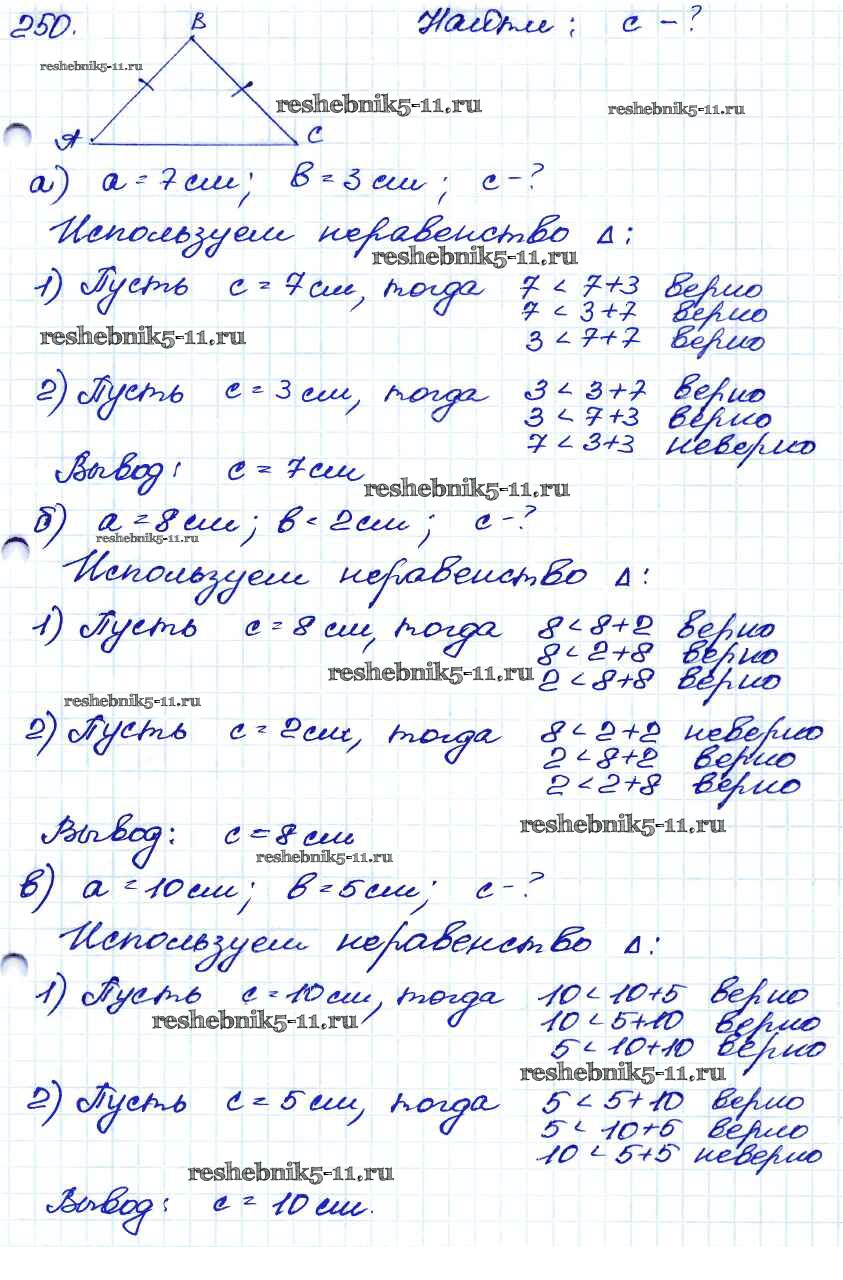 250. B Найти: c - ?
reshebnik5-11.ru
reshebnik5-11.ru
reshebnik5-11.ru
A C
а) a = 7 см; b = 3 см; c - ?
Используем неравенство Δ:
reshebnik5-11.ru
1) Пусть c = 7 см, тогда 7 < 7+3 верно
7 < 3+7 верно
reshebnik5-11.ru
3 < 7+7 верно
2) Пусть c = 3 см, тогда 3 < 3+7 верно
3 < 7+3 верно
7 < 3+3 неверно
Вывод: c = 7 см
reshebnik5-11.ru
б) a = 8 см; b < 2 см; c - ?
reshebnik5-11.ru
Используем неравенство Δ:
1) Пусть c = 8 см, тогда 8 < 8+2 верно
8 < 2+8 верно
reshebnik5-11.ru
2 < 8+8 верно
reshebnik5-11.ru
2) Пусть c = 2 см, тогда 8 < 2+2 неверно
2 < 8+2 верно
2 < 2+8 верно
reshebnik5-11.ru
Вывод: c = 8 см
reshebnik5-11.ru
в) a = 10 см; b = 5 см; c - ?
Используем неравенство Δ:
1) Пусть c = 10 см, тогда 10 < 10+5 верно
reshebnik5-11.ru
10 < 5+10 верно
5 < 10+10 верно
reshebnik5-11.ru
2) Пусть c = 5 см, тогда 5 < 5+10 верно
5 < 10+5 верно
10 < 5+5 неверно
reshebnik5-11.ru
Вывод: c = 10 см.